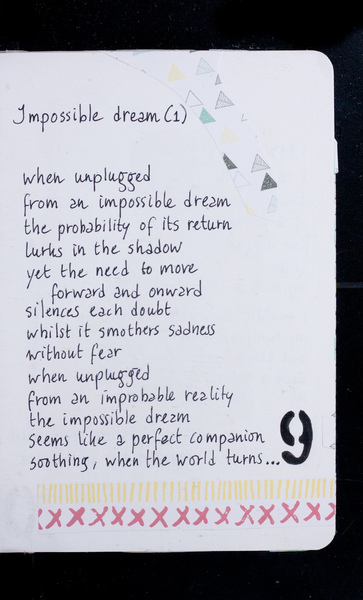 Impossible dream (1)
when unplugged
from an impossible dream
the probability of its return
lurks in the shadow
yet the need to move
forward and onward
silences each doubt
whilst it smothers sadness
without fear
when unplugged
from an improbable reality
the impossible dream
seems like a perfect companion
soothing, when the world turns...
9